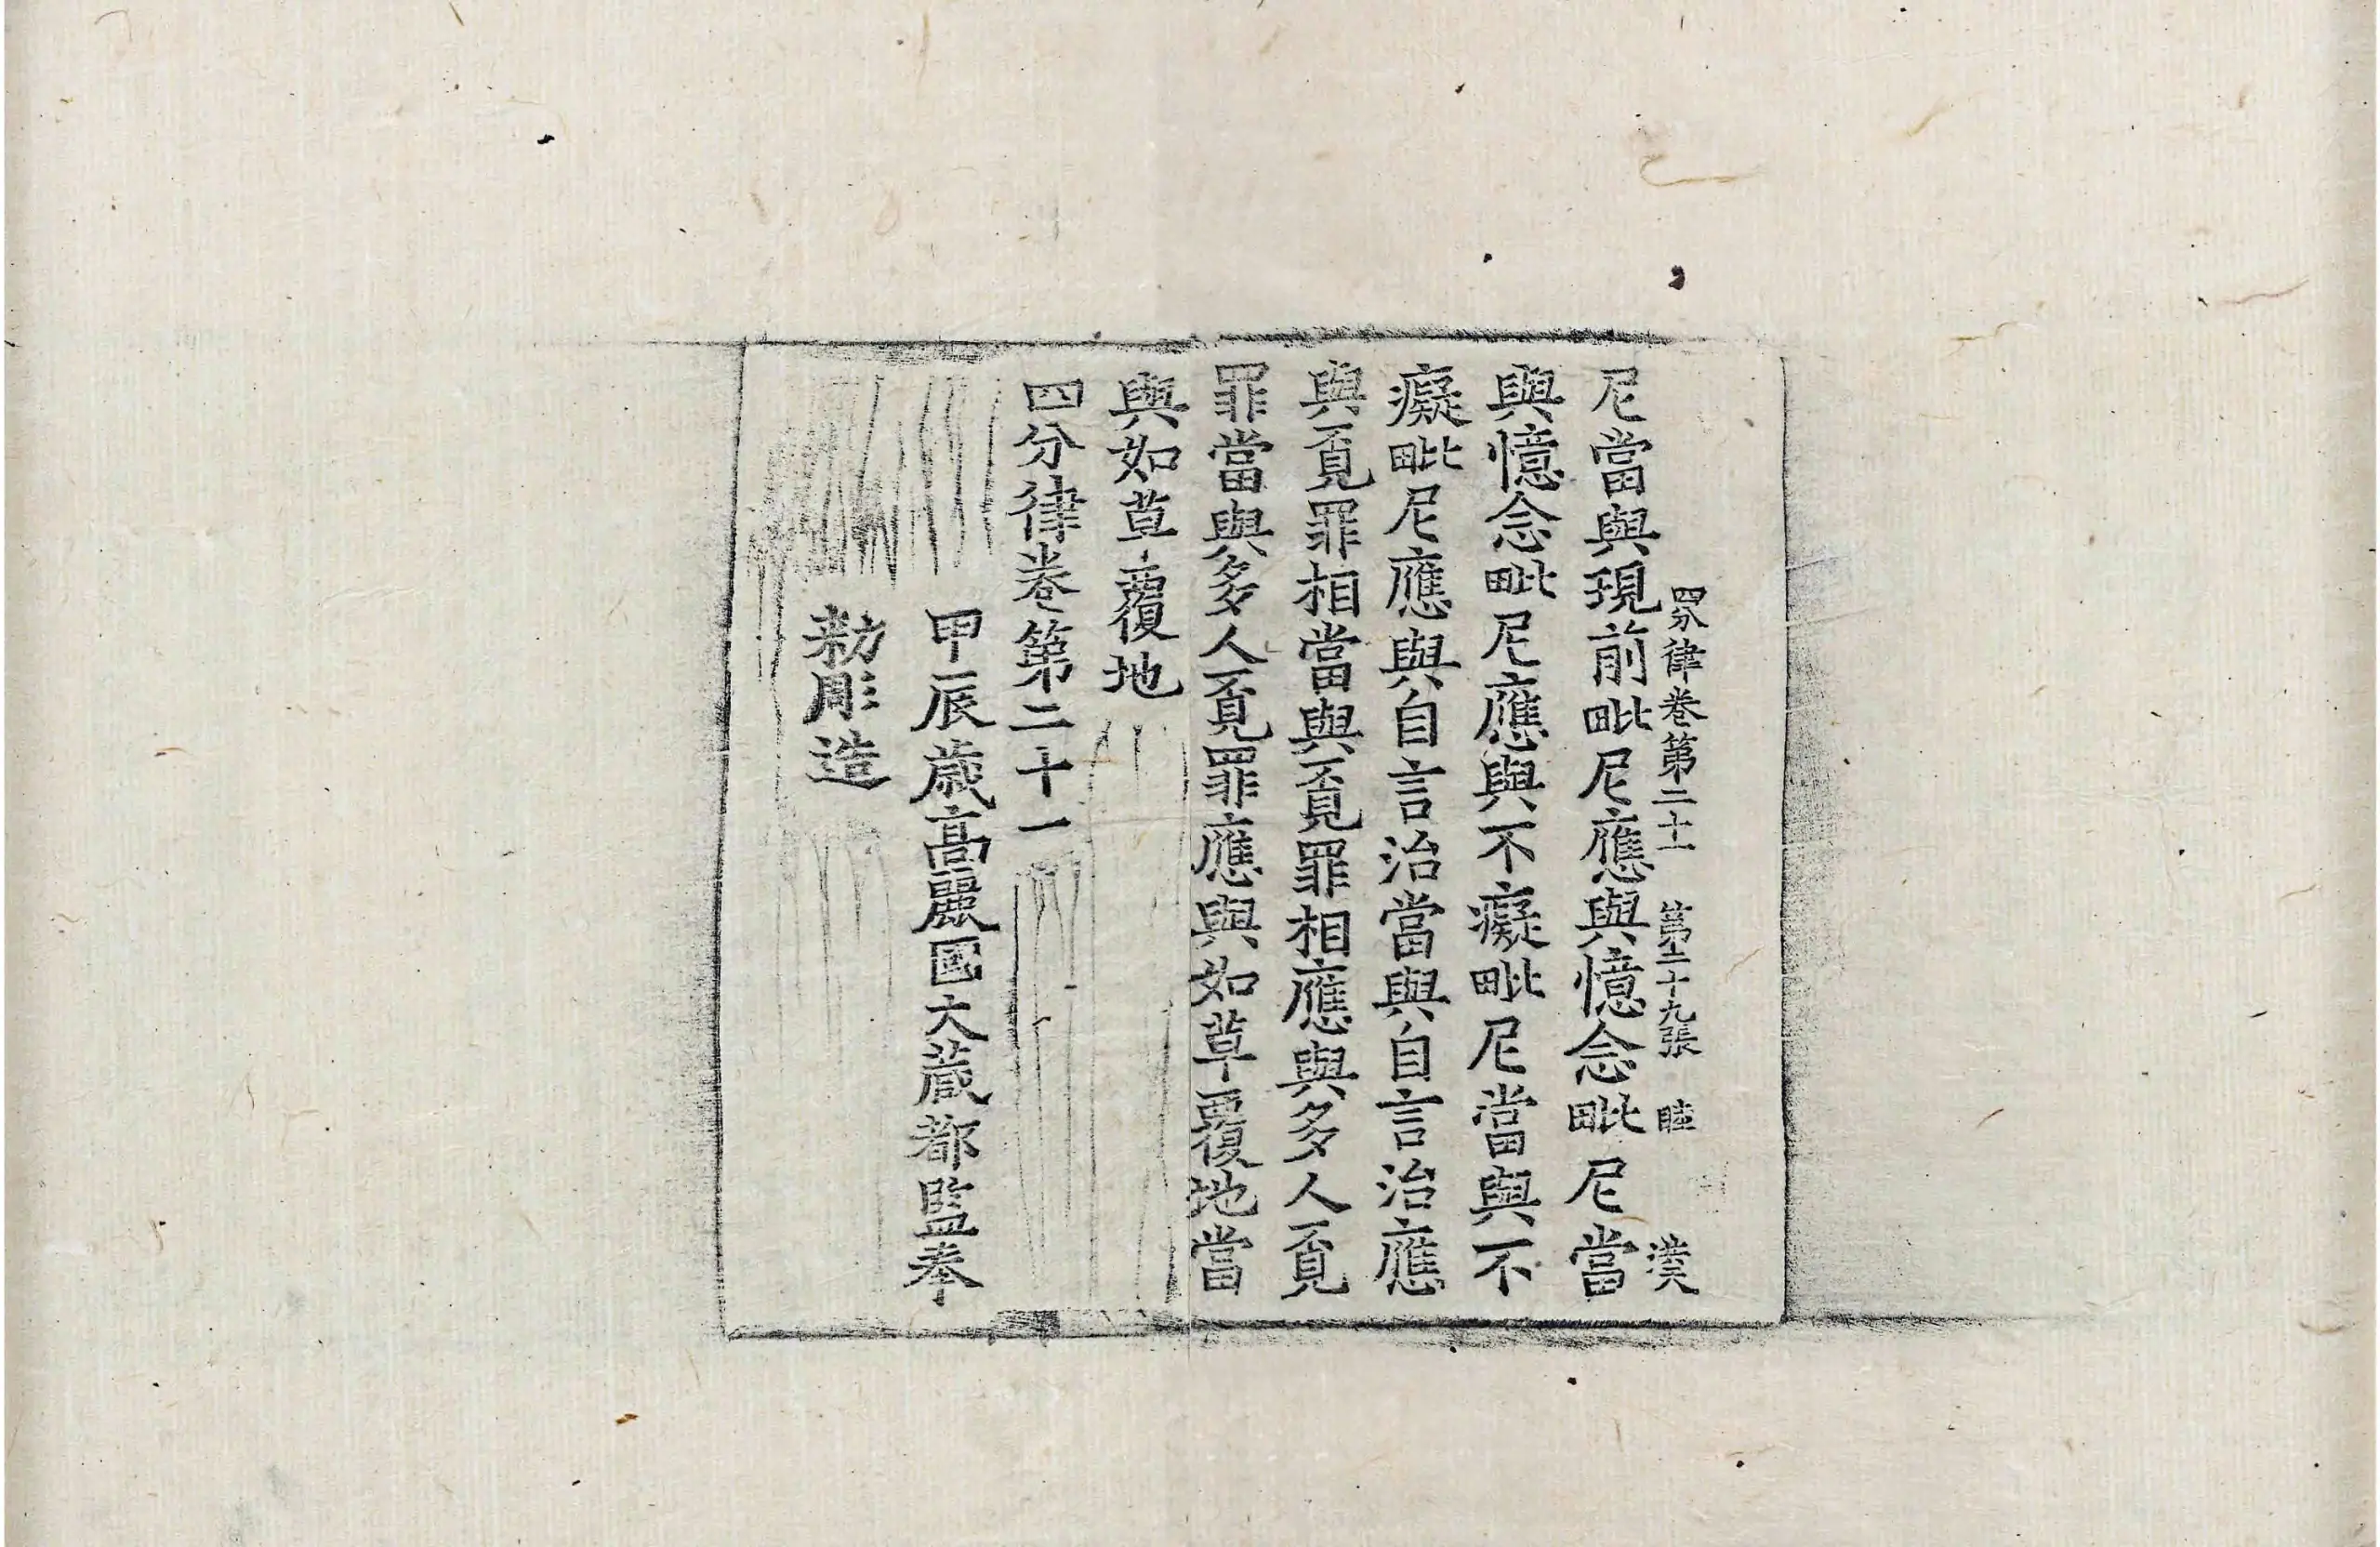 四分律卷第二十一 第二十九張 睦 漢
尼當與現前毗尼應與憶念毗尼當
與憶念毗尼應與不癡毗尼當與不
癡毗尼應與自言治當與自言治應
與覔罪相當與覔罪相應與多人覔
罪當與多人覔罪應與如草覆地當
與如草覆地
四分律卷第二十一
甲辰歲高麗國大藏都監奉
勑彫造